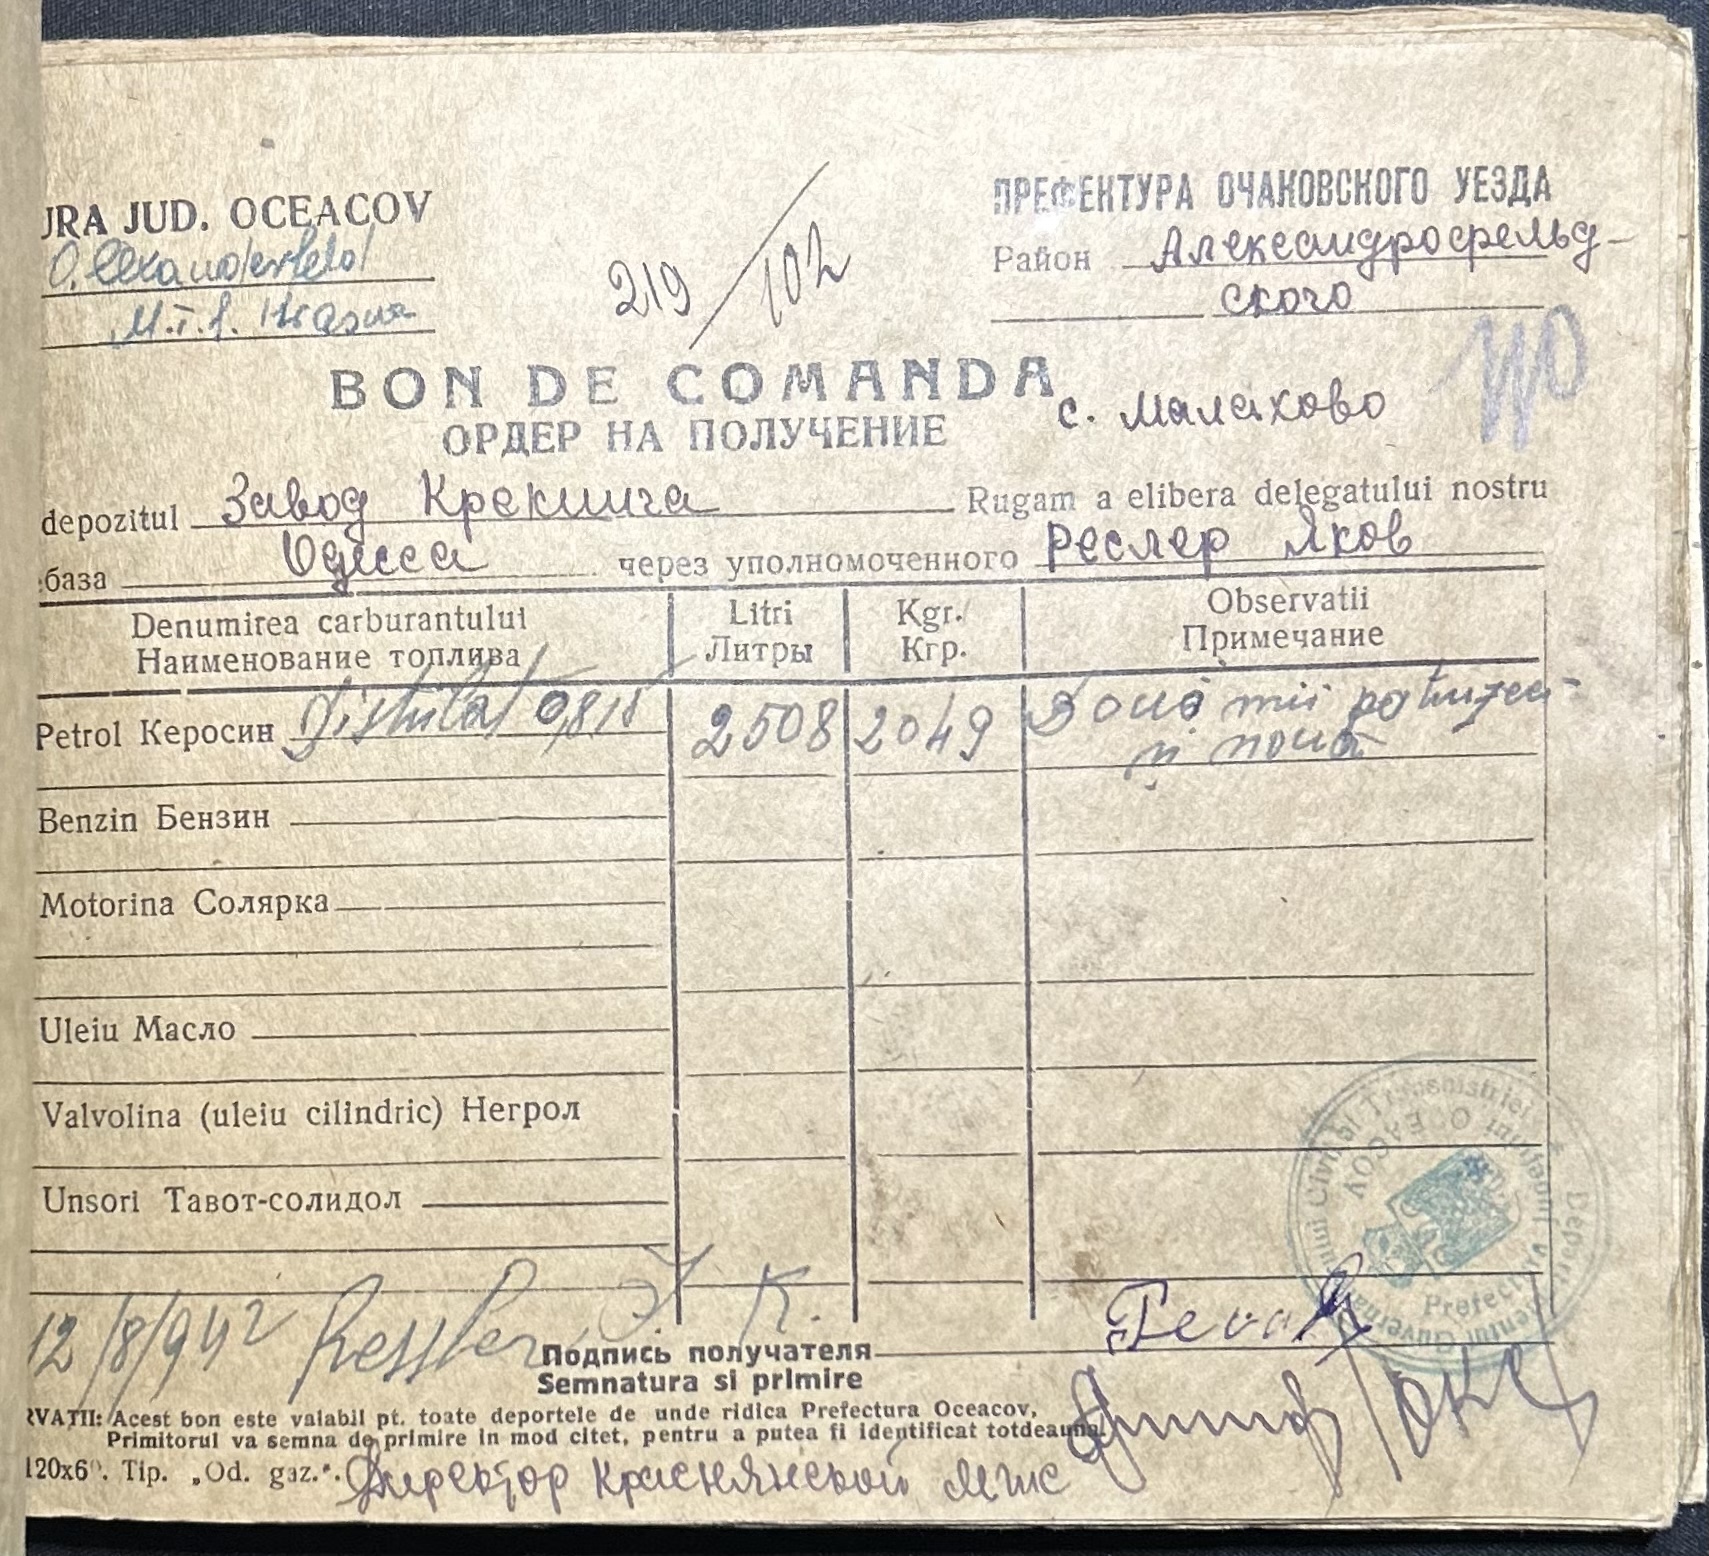 JRA JUD. OCEACOV
ПРЕФЕКТУРА ОЧАКОВСКОГО УЕЗДА
Район Александрофельд-
ского
M.T.S. Krasna
219/102
BON DE COMANDA
с. Малахово
ОРДЕР НА ПОЛУЧЕНИЕ
depozitul Завод Крекинга Rugam a elibera delegatului nostru
база Одесса через уполномоченного Реслер Яков
Denumirea carburantului Litri Kgr. Observatii
Наименование топлива Литры Кгр. Примечание
Petrol Керосин Distilat 0,818 2508 2049 Două mii patruzeci
și nouă
Benzin Бензин
Motorina Солярка
Uleiu Масло
Valvolina (uleiu cilindric) Негрол
Unsori Тавот-солидол
12/8/942 Ressler J. K.
Подпись получателя
Semnatura si primire
RVAȚII: Acest bon este valabil pt. toate deportele de unde ridica Prefectura Oceacov,
Primitorul va semna de primire in mod citet, pentru a putea fi identificat totdeauna.
120x6. Tip. „Od. gaz.". Директор Краснянской МТС
OCEACOV